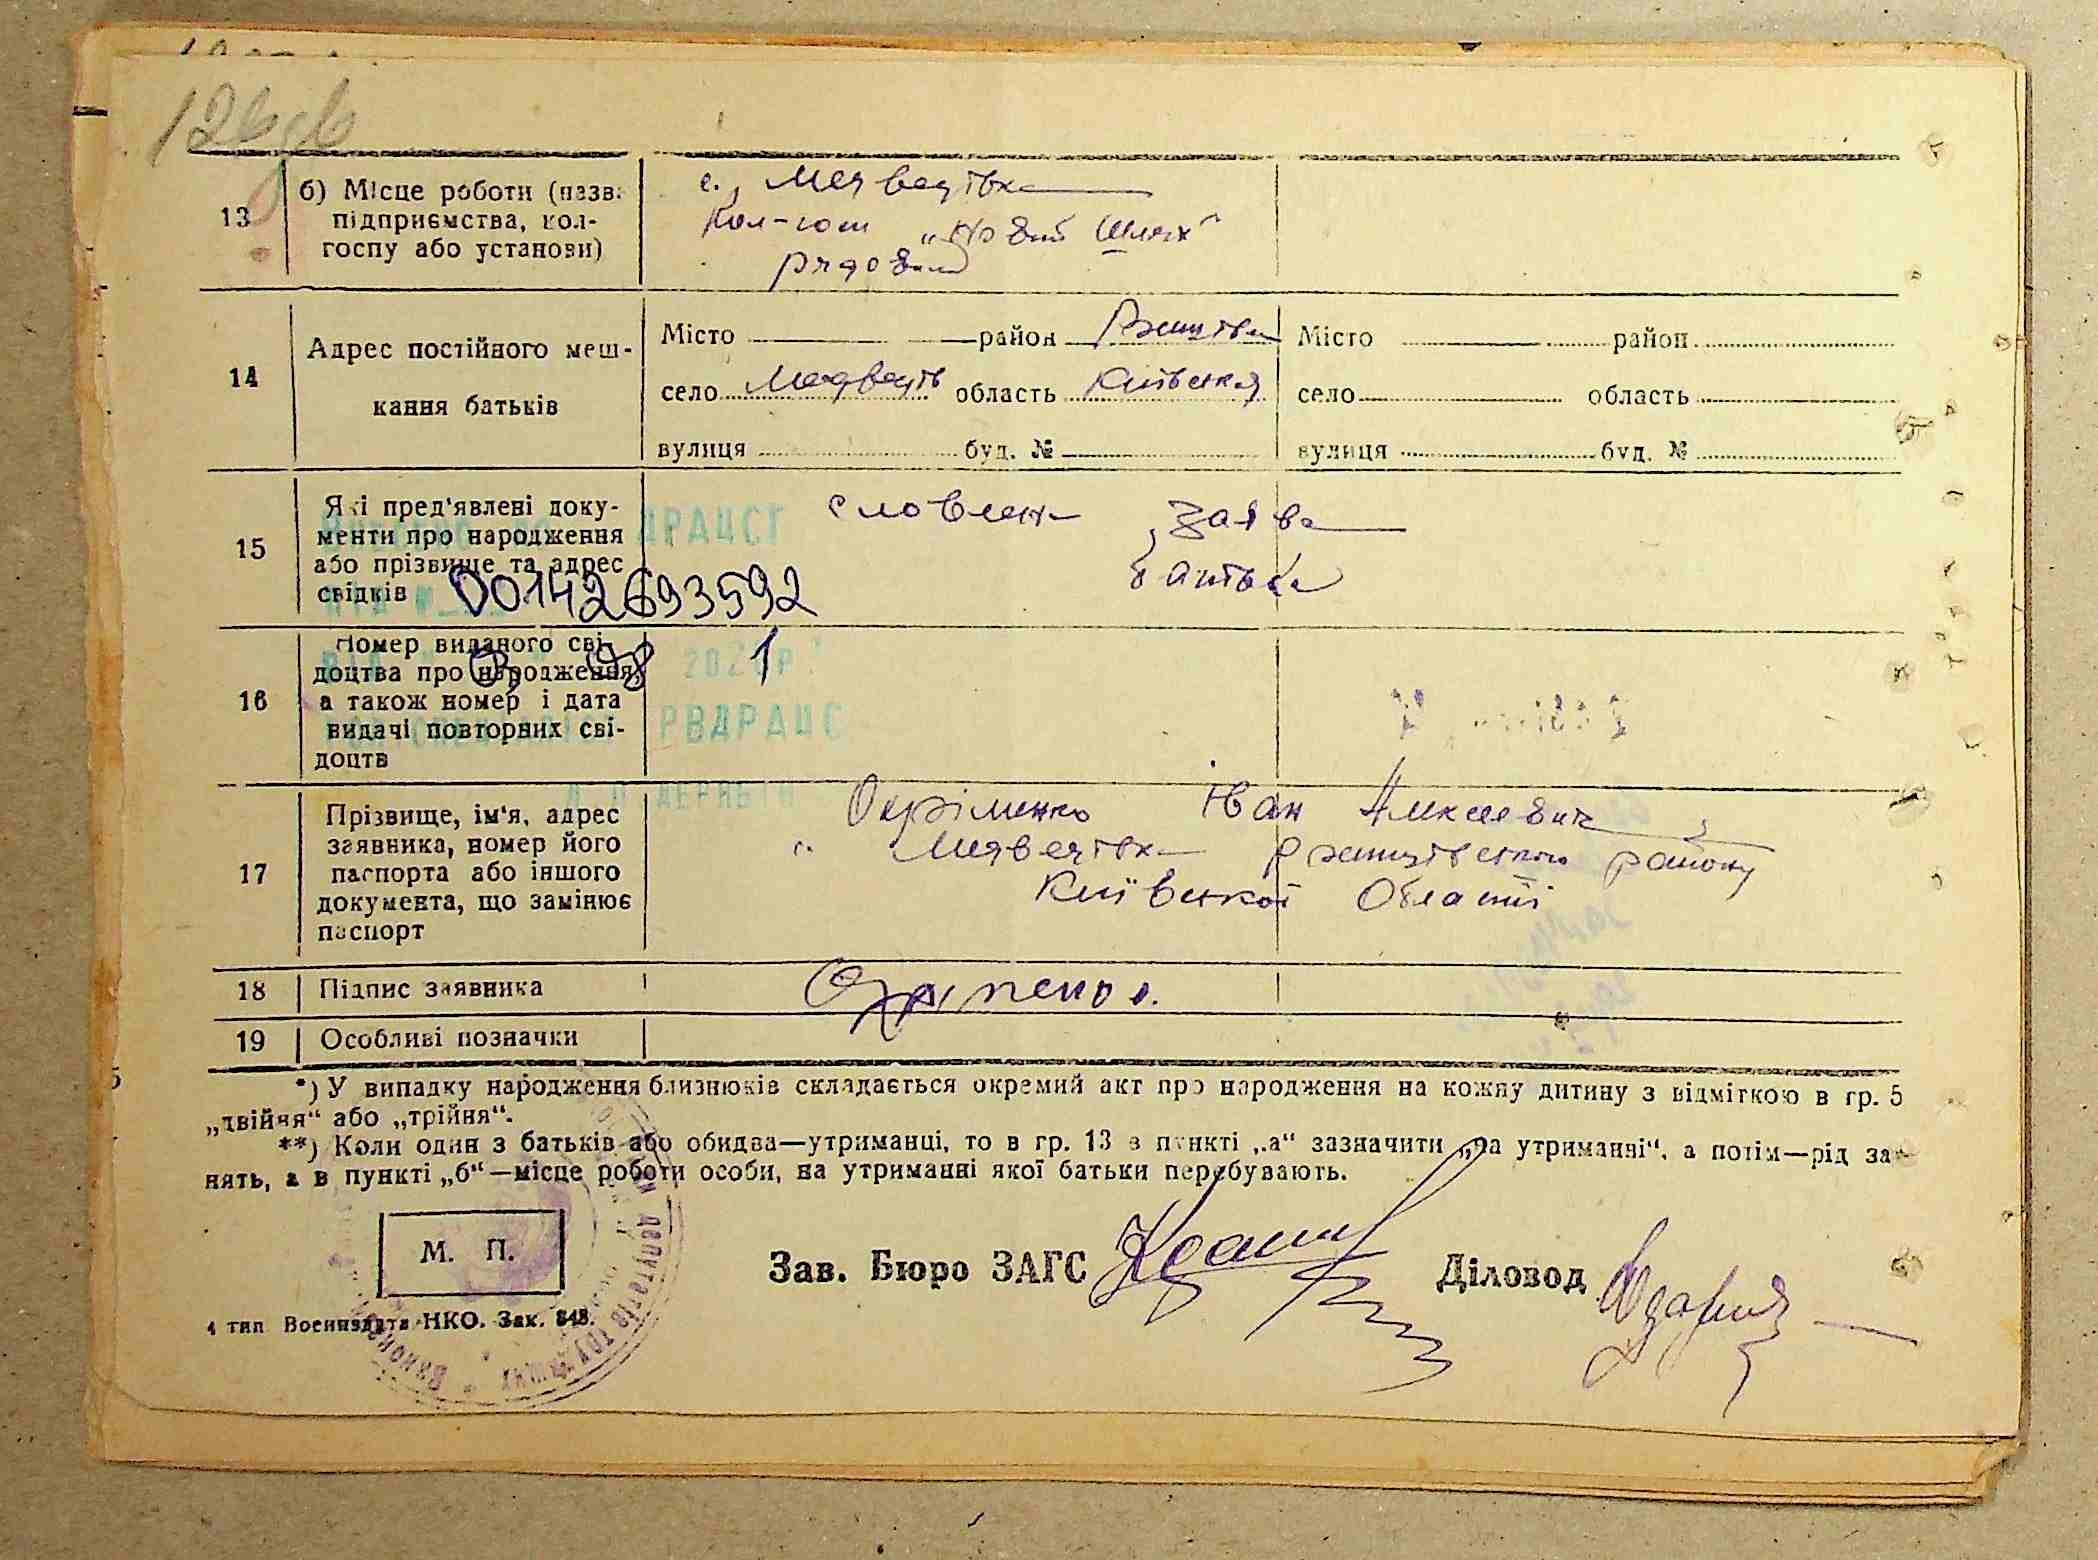 13
б) Місце роботи (назва
підприємства, кол-
госпу або установи)
с. Медведівка
Кол-госп „Новий Шлях“
рядовий
14
Адрес постійного меш-
кання батьків
Місто район
село область Київська
вулиця буд. №
Місто район
село область
вулиця буд. №
15
Які пред'явлені доку-
менти про народження
або прізвище та адрес
свідків
ДРАЦСГ
00142693592
словесна заява
батька
16
Номер виданого сві-
доцтва про народження,
а також номер і дата
видачі повторних сві-
доцтв
1
РВДРАЦС
17
Прізвище, ім'я, адрес
заявника, номер його
паспорта або іншого
документа, що замінює
паспорт
Охріменко Іван Алексеєвич
с. Медведівка Ржищівського району
Київської Області
18
Підпис заявника
19
Особливі позначки
*) У випадку народження близнюків складається окремий акт про народження на кожну дитину з відміткою в гр. 5
„двійня“ або „трійня“.
**) Коли один з батьків або обидва—утриманці, то в гр. 13 в пункті „а“ зазначити „на утриманні“, а потім—рід за-
нять, а в пункті „б“—місце роботи особи, на утриманні якої батьки перебувають.
М. П.
Зав. Бюро ЗАГС
Діловод
4 тип Воениздата НКО. Зак. 848.
депутатів трудящих